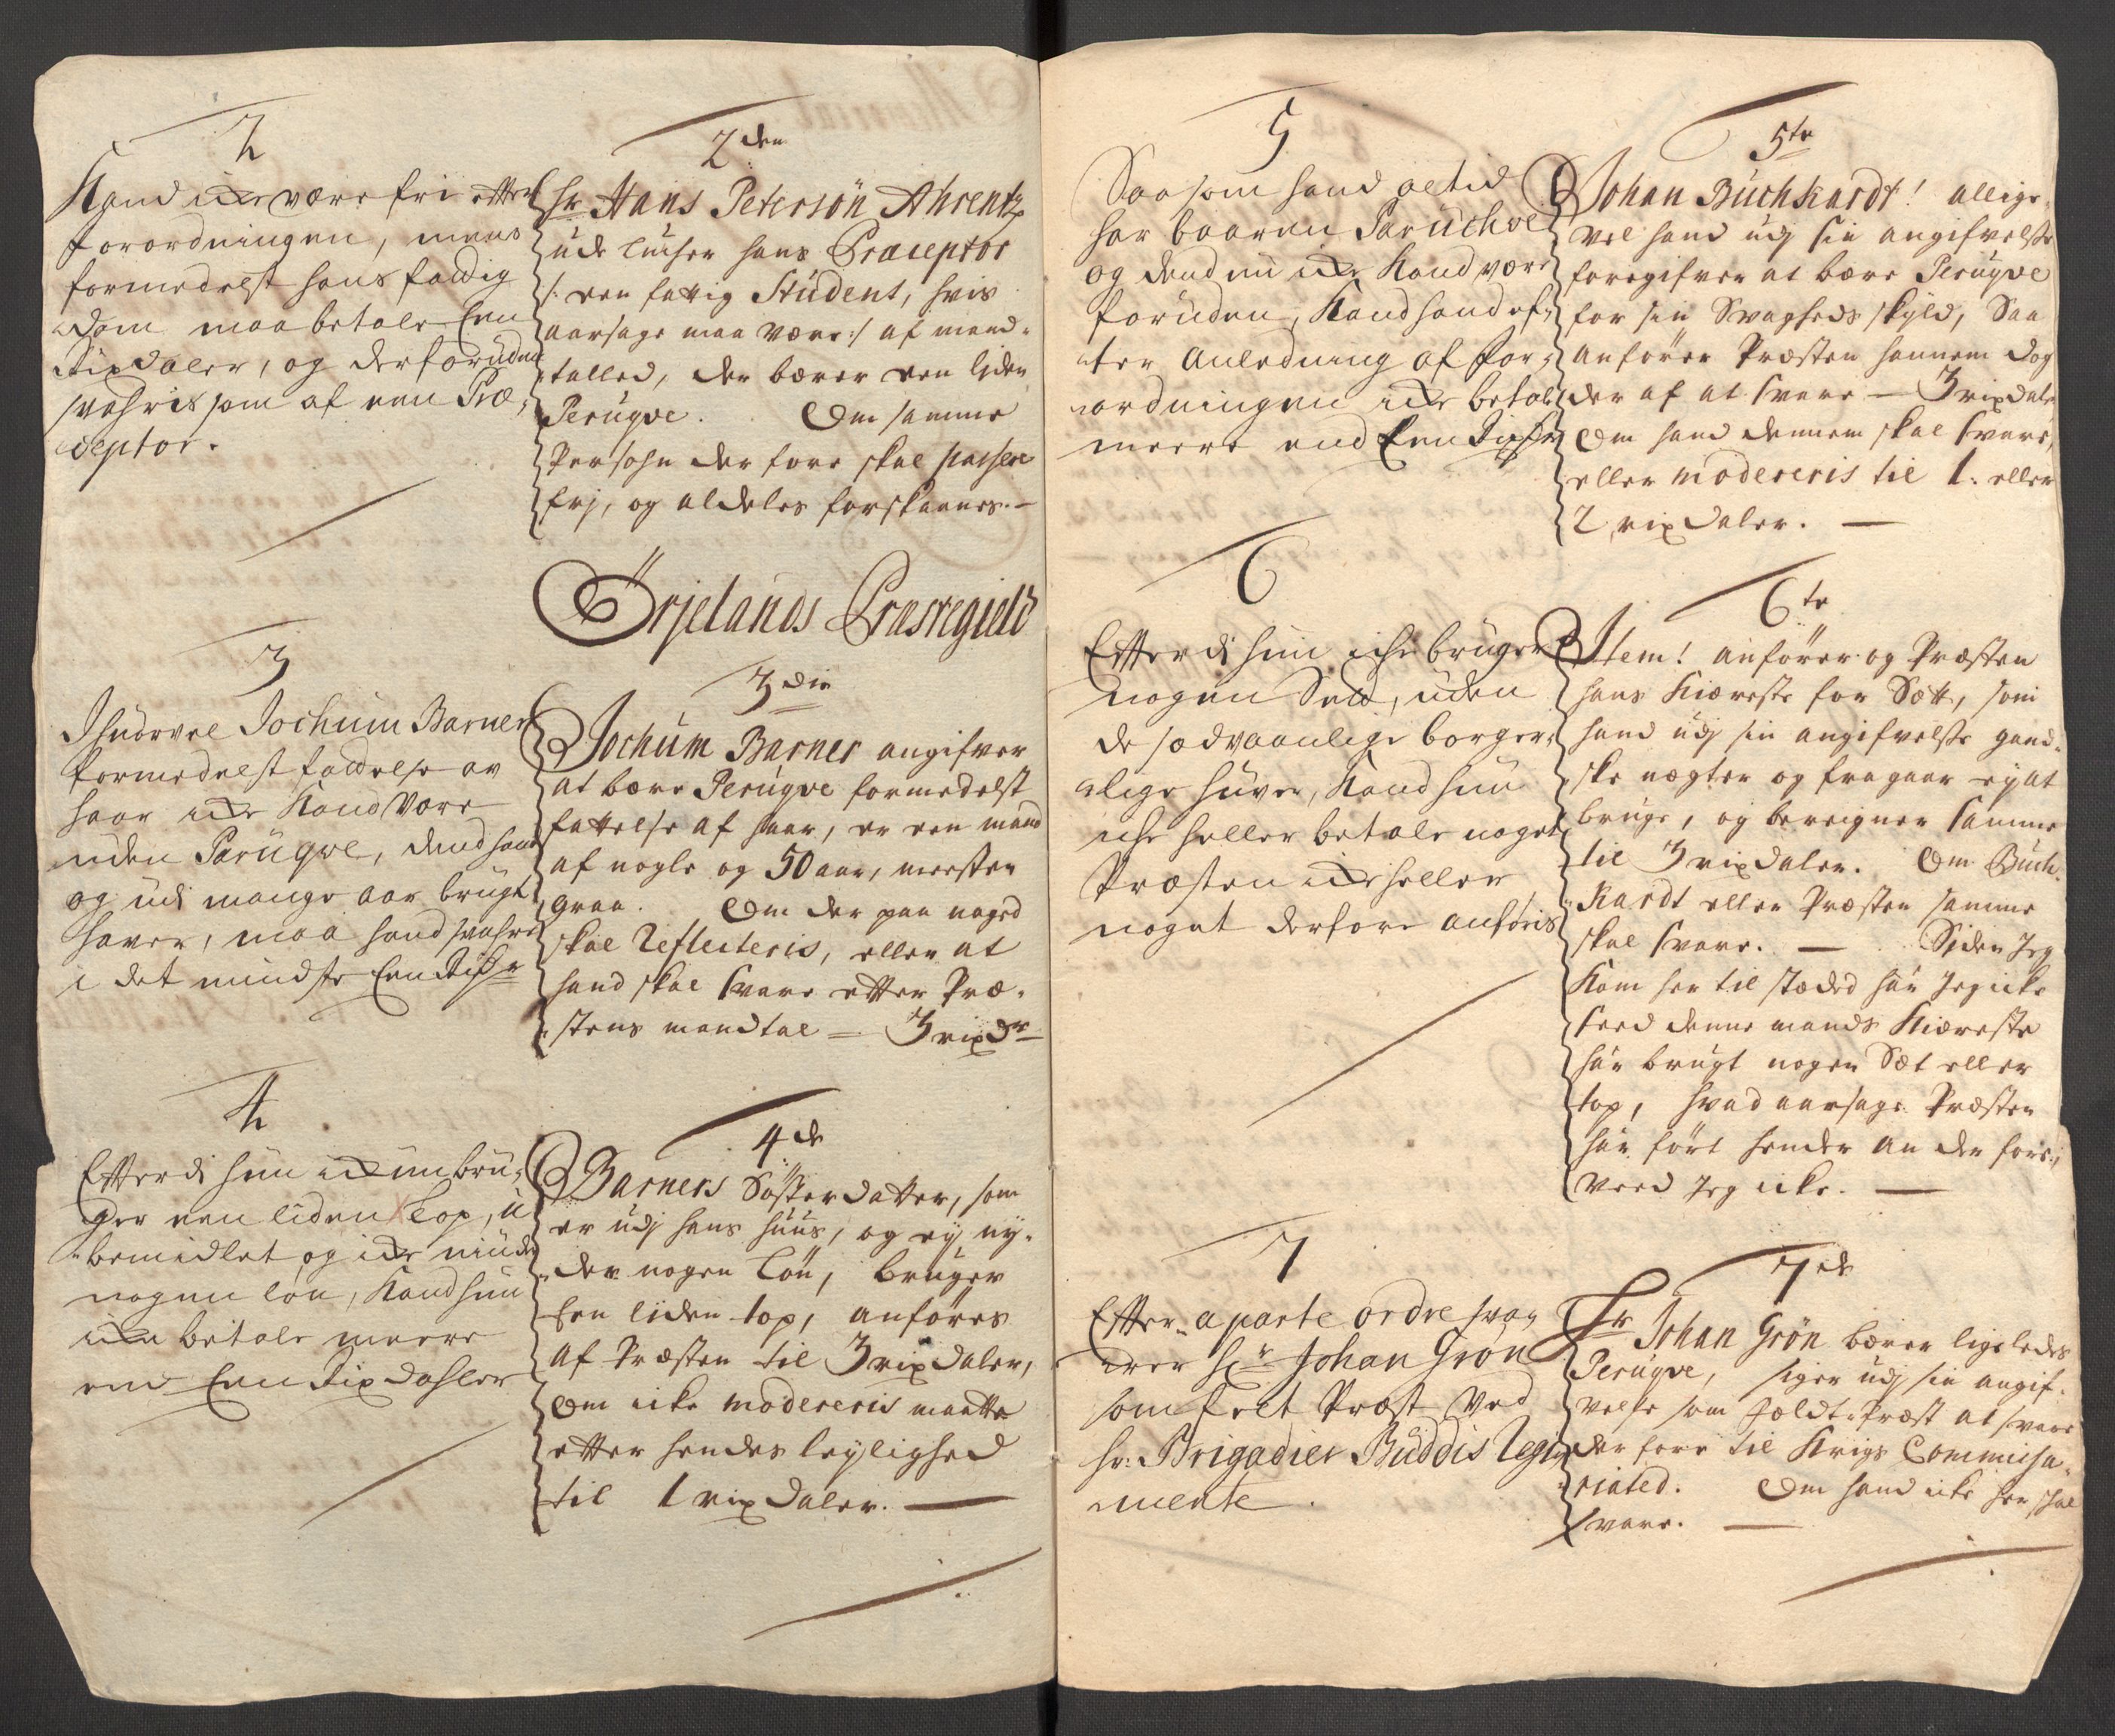 2
Kand icke være fri etter
forordningen, mens
formedelst hans fattig
dom maa betale Een
Rixdaler, og derforuden
svahris som af een Præ¸
ceptor.
2den
Hr. Hans Petersön Ahrentz
ude hans Præceptor
/: een fattig Student, hvis
aarsage maa være :/ af mand¸
talled, der bærer een liden
Perúqve. Om samme
Persohn der fore skal passere
frj, og aldeles forskaanes. —
Örjelands Præstegield
3
Ihuorvel Jochum Barner
formedelst fattelse av
haar icke Kand være
uden Parúqve, dend hand
og udi mange aar brugt
haver, maa hand svahre
i det mindste Een Rixdr
3die
Jochúm Barner angifver
at bære Perúqve formedelst
fattelse af haar, er een mand
af nogle og 50 aar, meesten
graa. Om der paa noged
skal Reflecteris, eller at
hand skal svare etter Præ¸
stens mandtal — 3 rixdr
4
Efterdi hun icke bru¸
ger een liden top, u
bemidlet og icke niuder
nogen lön, Kand hun
icke betale meere
end Een Rixdahler
4de
Barners Sösterdatter, som
er udj hans húús, og ej ny¸
der nogen Lön, brúger
Een liden top, anföres
af Præsten til 3 rixdaler,
Om icke modereris maatte
etter hendes leylighed
til 1 rixdaler. —
5
Saasom hand altid
har baaren Parúchve
og dend nu icke Kand være
foruden, Kand hand ef¸
ter Anledning af for¸
ordningen icke betale
meere end Een Rixdr
5te
Johan Búchhardt! allige¸
vel hand udj sin angifvelse
foregifver at bære Perúqve
for sin Svagheds skyld, Saa
anförer Præsten hannem dog
der af at svare — 3 rixdaler
Om hand dennem skal svare,
eller modereris til 1. eller
2 rixdaler. —
6
Efterdi hun iche bruger
nogen Sett, uden
de sædvaanlige borger¸
lige húver, Kand hun
iche heller betale noget
Præsten icke heller
noget derfore anföris
6te
Item! anförer og Præsten
hans Kiæreste for Sætt, som
hand udj sin angifvelse gand¸
ske nægter og fragaar ej at
bruge, og beregner samme
til 3 rixdaler. Om Búch¸
kardt eller Præsten samme
skal svare. — Siden Jeg
Kom her til stæded har Jeg icke
seed denne mands Kiæreste
har brugt nogen Sæt eller
top, hvad aarsage Præsten
har fört hender an der fore,
veed Jeg icke. —
7
Efter aparte ordre sva¸
rer Hr. Johan Grön
som Felt Præst ved
hr: Brigadier Búddis Regi
mente.
7de
Hr Johan Grön bærer ligeledes
Perúqve, siger udj sin angif¸
velse som Feldt-Præst at svare
der fore til Krigs Commissa¸
riated. Om hand icke her skal
svare. —